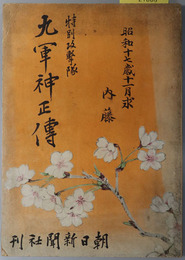 昭和十七歳十二月求
内藤
特別攻撃隊
九軍神正傳
朝日新聞社刊